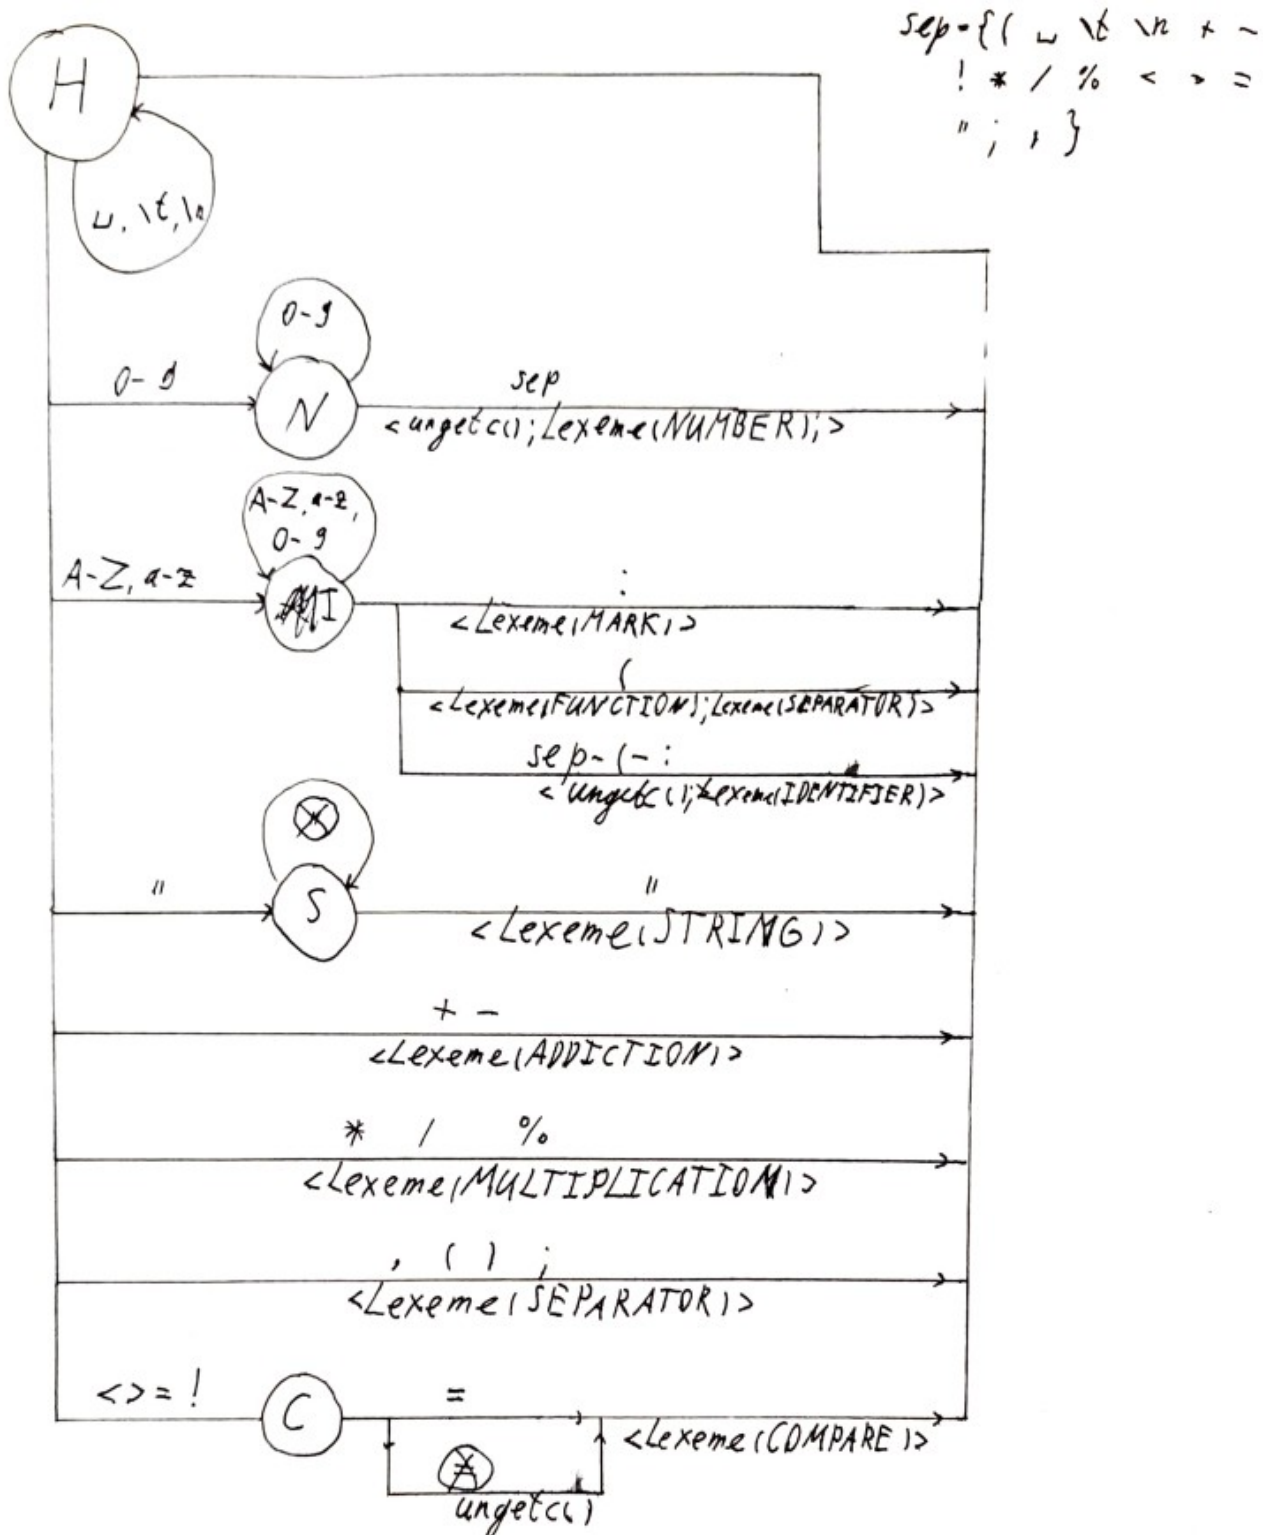 sep={( ␣ \t \n + -
! * / % < > =
" ; , }
H
␣, \t, \n
0-9
0-9
N
sep
<ungetc(); Lexeme(NUMBER);>
A-Z, a-z,
0-9
A-Z, a-z
I
:
<Lexeme(MARK)>
(
<Lexeme(FUNCTION); Lexeme(SEPARATOR)>
sep-(-:
<ungetc(); Lexeme(IDENTIFIER)>
"
S
"
<Lexeme(STRING)>
+ -
<Lexeme(ADDICTION)>
* / %
<Lexeme(MULTIPLICATION)>
, ( ) ;
<Lexeme(SEPARATOR)>
< > = !
C
=
<Lexeme(COMPARE)>
ungetc()